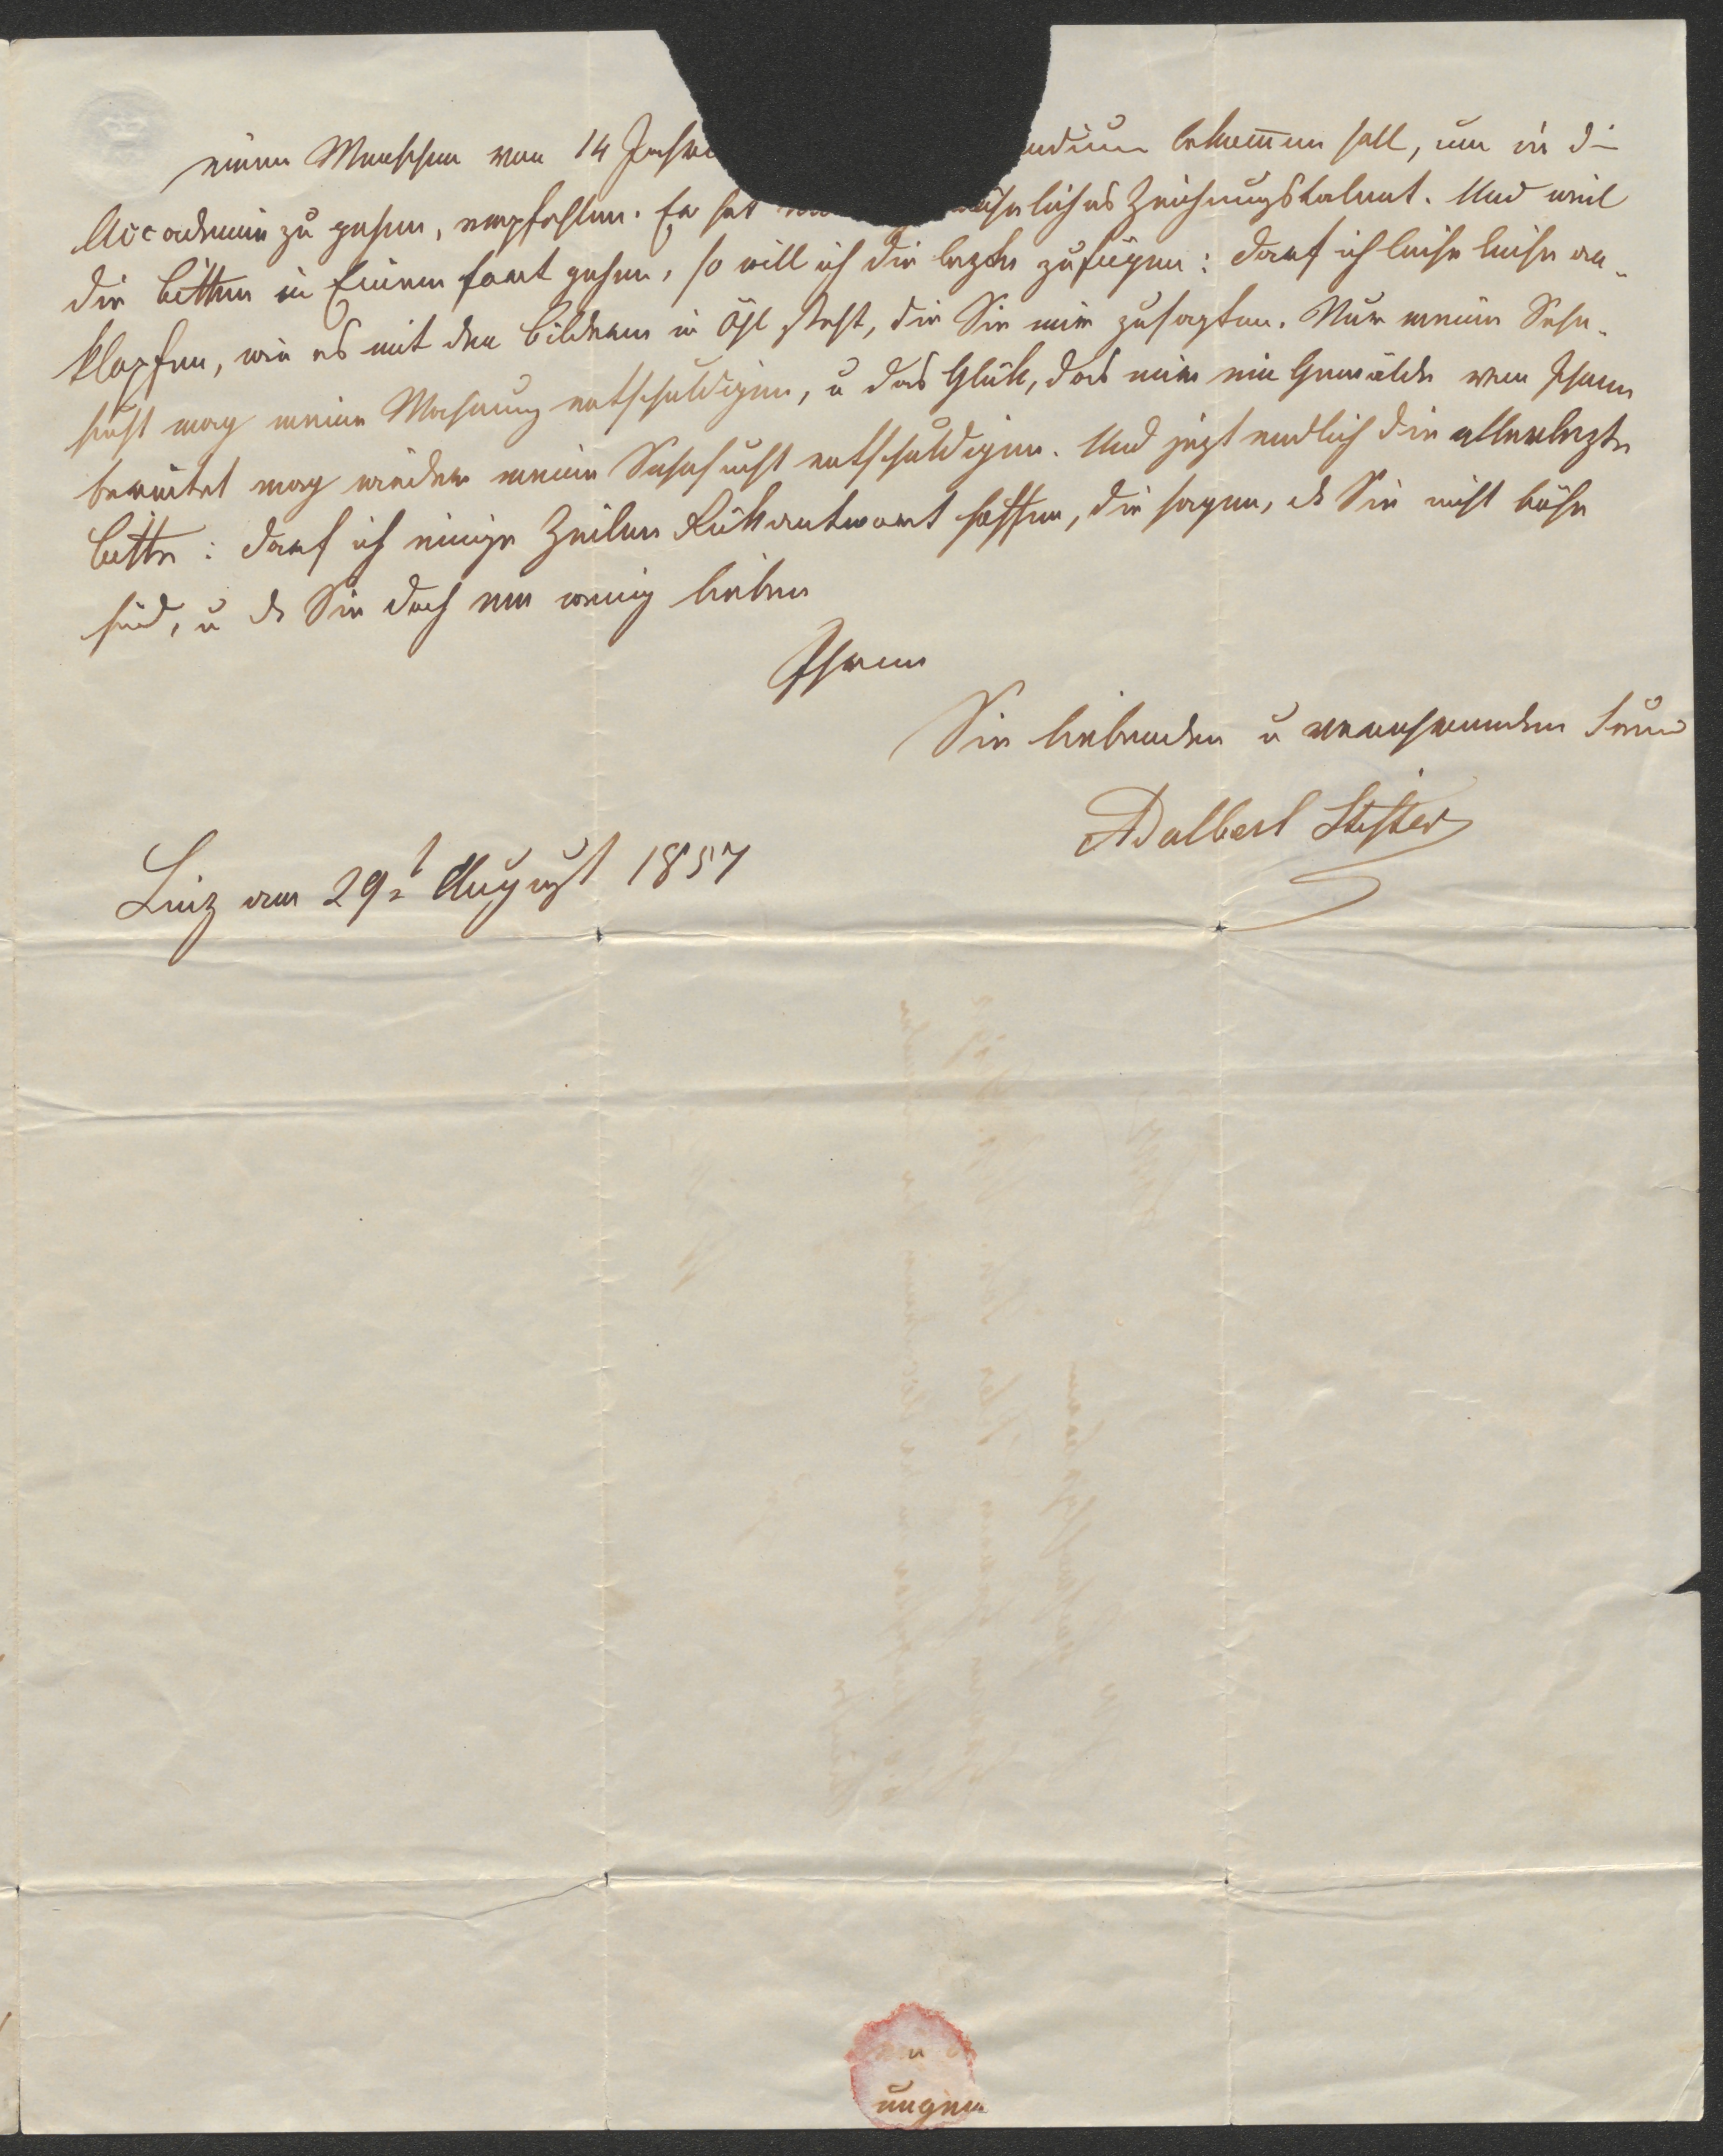 einen Menschen von 14 Jahre
ndium bekom̅en soll, um in die
Accademie zu gehen, empfohlen. Er hat
öhnliches Zeichnungstalent. Und weil
die Bitten in Einem fort gehen, so will ich die lezte zufügen: darf ich leise leise an-
klopfen, wie es mit den Bildern in Öhl steht, die Sie mir zusagten. Nur meine Sehn-
sucht mag meine Mahnung entschuldigen, u das Glük, das mir ein Gemälde von Ihnen
bereitet mag wieder meine Sehnsucht entschuldigen. Und jezt endlich die allerlezte
Bitte: darf ich einige Zeilen Rükantwort hoffen, die sagen, ds Sie nicht böse
sind, u ds Sie doch ein wenig lieben
Ihren
Sie liebenden u verehrenden Freund
Adalbert Stifter
Linz am 29t August 1857
ungen